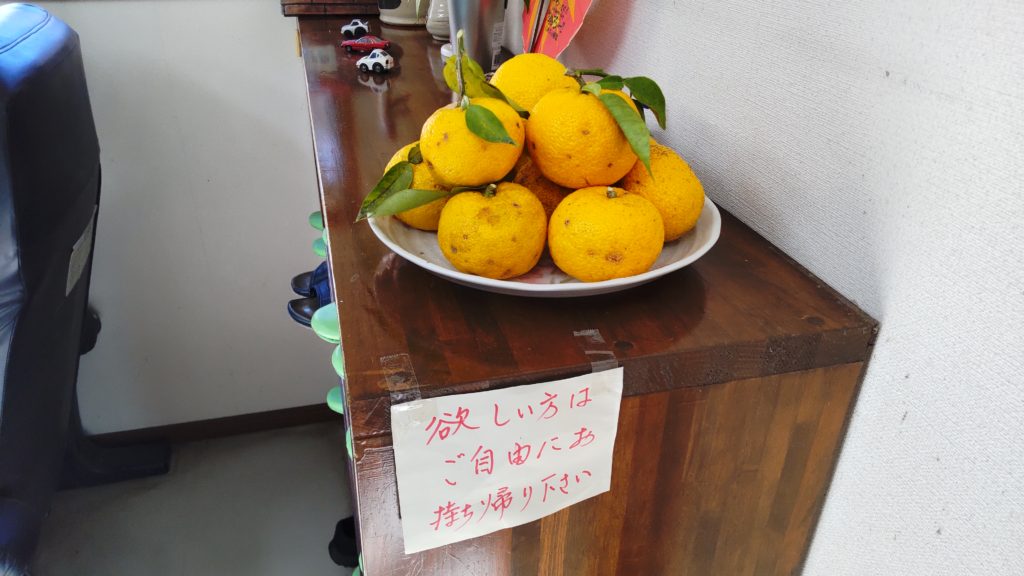 欲しい方は
ご自由にお
持ち帰り下さい